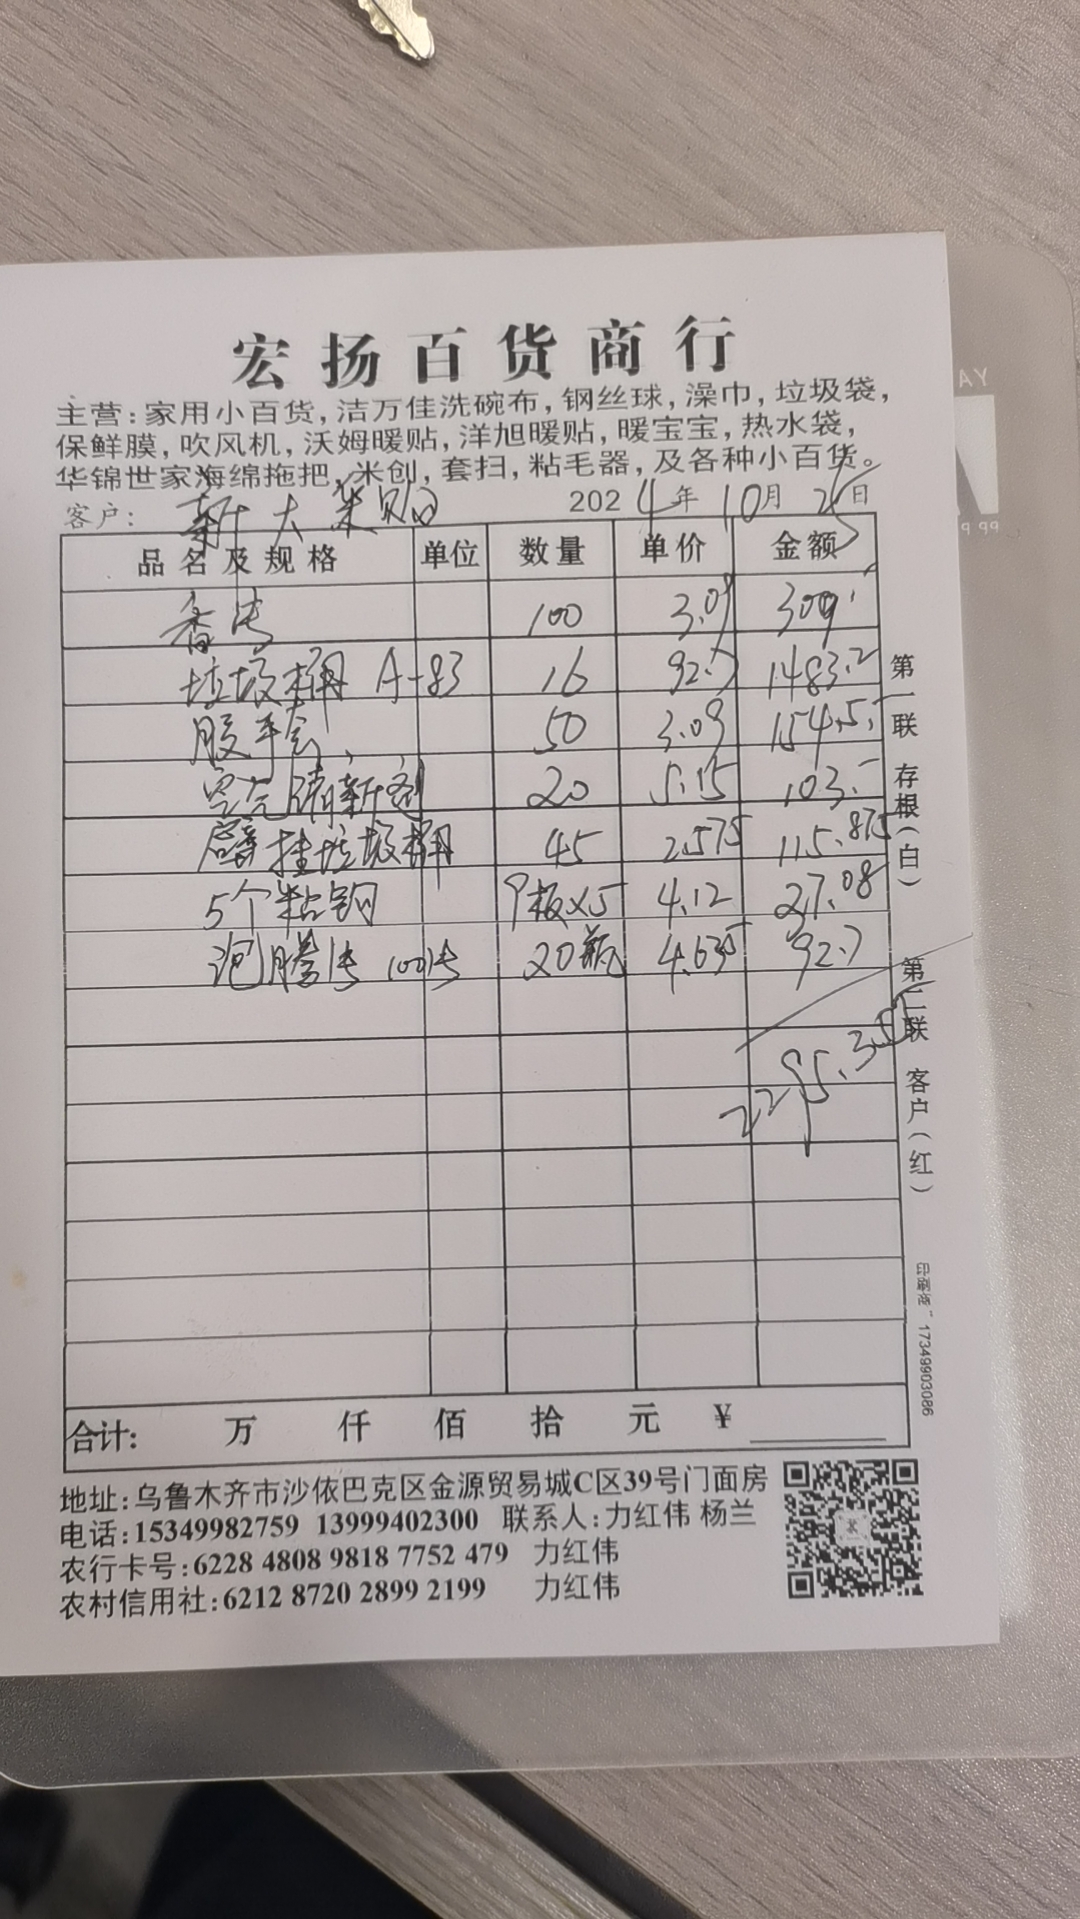 宏扬百货商行
主营:家用小百货,洁万佳洗碗布,钢丝球,澡巾,垃圾袋,
保鲜膜,吹风机,沃姆暖贴,洋旭暖贴,暖宝宝,热水袋,
华锦世家海绵拖把,米创,套扫,粘毛器,及各种小百货。
客户: 新大采购 2024年10月25日
品名及规格 单位 数量 单价 金额
香皂 100 3.09 309
垃圾桶 A-83 16 92.7 1483.2
胶手套 50 3.09 154.5
空气清新剂 20 5.15 103.-
壁挂垃圾桶 45 2.575 115.875
5个粘钩 9板x5 4.12 27.08
泡腾 100 20瓶 4.635 92.7
2295.355
合计: 万 仟 佰 拾 元 ¥
地址:乌鲁木齐市沙依巴克区金源贸易城C区39号门面房
电话:15349982759 13999402300 联系人:力红伟 杨兰
农行卡号:6228 4808 9818 7752 479 力红伟
农村信用社:6212 8720 2899 2199 力红伟
第一联 存根(白)
第二联 客户(红)
印刷商 17349903086